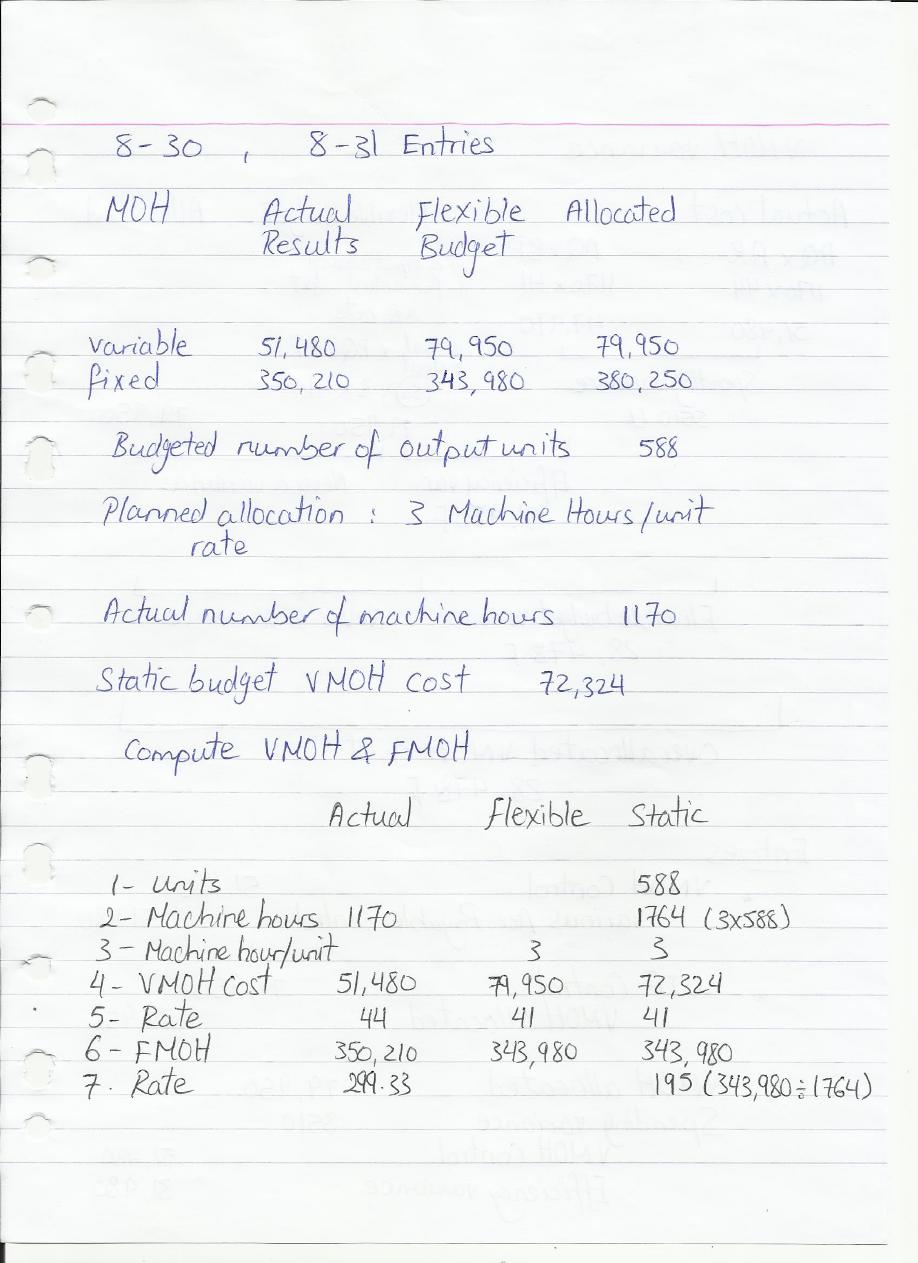 8-30 , 8-31 Entries
MOH Actual Flexible Allocated
Results Budget
variable 51,480 79,950 79,950
fixed 350,210 343,980 380,250
Budgeted number of output units 588
Planned allocation : 3 Machine Hours/unit
rate
Actual number of machine hours 1170
Static budget VMOH cost 72,324
Compute VMOH & FMOH
Actual Flexible Static
1- Units 588
2- Machine hours 1170 1764 (3x588)
3- Machine hour/unit 3 3
4- VMOH cost 51,480 79,950 72,324
5- Rate 44 41 41
6- FMOH 350,210 343,980 343,980
7. Rate 299.33 195 (343,980÷1764)